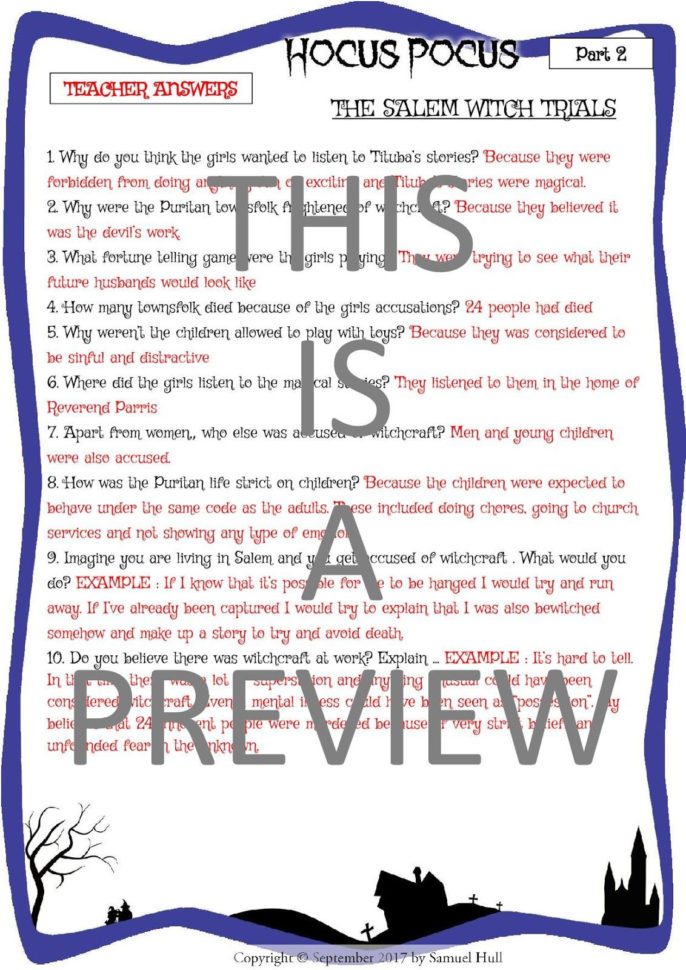 HOCUS POCUS
Part 2
TEACHER ANSWERS
THE SALEM WITCH TRIALS
1. Why do you think the girls wanted to listen to Tituba's stories? Because they were
forbidden from doing of exciting and Tituba's stories were magical.
2. Why were the Puritan townsfolk frightened of witchcraft? Because they believed it
was the devil's work.
3. What fortune telling game were the girls playing? They were trying to see what their
future husbands would look like
4. How many townsfolk died because of the girls accusations? 24 people had died
5. Why weren't the children allowed to play with toys? Because they was considered to
be sinful and distractive
6. Where did the girls listen to the magical stories? They listened to them in the home of
Reverend Parris
7. Apart from women,, who else was accused of witchcraft? Men and young children
were also accused.
8. How was the Puritan life strict on children? Because the children were expected to
behave under the same code as the adults. These included doing chores, going to church
services and not showing any type of emotion.
9. Imagine you are living in Salem and you get accused of witchcraft . What would you
do? EXAMPLE : If I know that it's possible for me to be hanged I would try and run
away. If I've already been captured I would try to explain that I was also bewitched
somehow and make up a story to try and avoid death.
10. Do you believe there was witchcraft at work? Explain ... EXAMPLE : It's hard to tell.
In that time there was a lot of superstition and anything unusual could have been
considered witchcraft. Even mental illness could have been seen as "possession". My
belief is that 24 innocent people were murdered because of very strict beliefs and
unfounded fear in the unknown.
THIS
IS
A
PREVIEW
Copyright © September 2017 by Samuel Hull